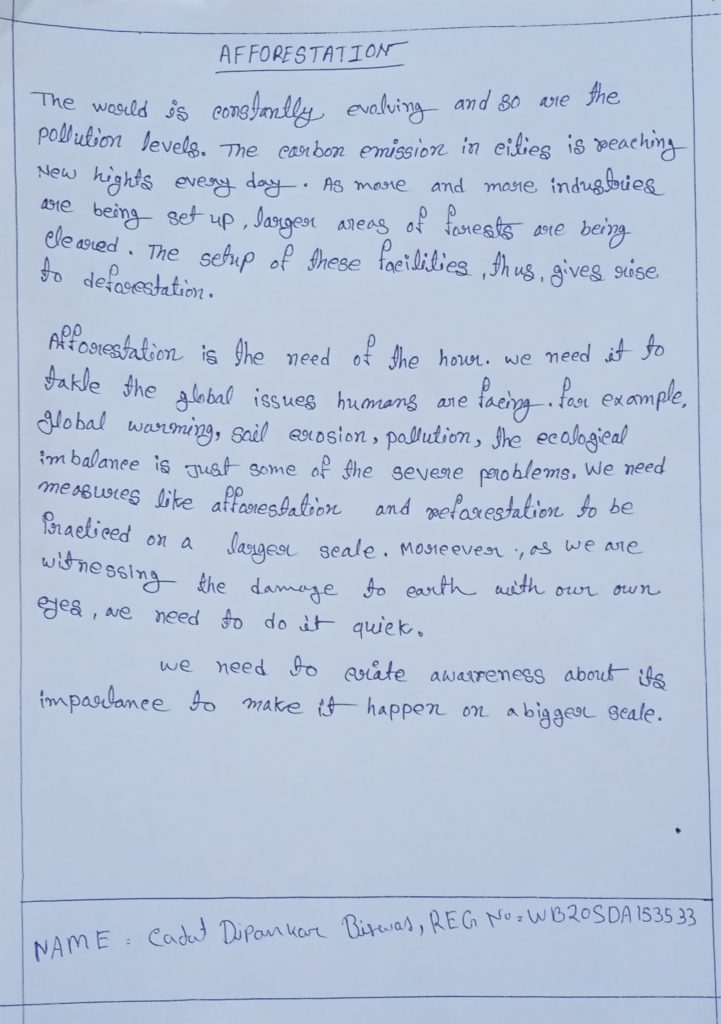 AFFORESTATION
The world is constantly evolving and so are the
pollution levels. The carbon emission in cities is reaching
New hights every day. As more and more industries
are being set up, larger areas of forests are being
cleared. The setup of these facilities, thus, gives rise
to deforestation.
Afforestation is the need of the hour. we need it to
takle the global issues humans are facing. for example,
global warming, soil erosion, pollution, the ecological
imbalance is Just some of the severe problems. We need
measures like afforestation and reforestation to be
Practiced on a larger scale. Moreever., as we are
witnessing the damage to earth with our own
eyes, we need to do it quick.
we need to create awarreness about its
importance to make it happen on a bigger scale.
NAME : Cadut Dipankar Biswas, REG No: WB20SDA153533